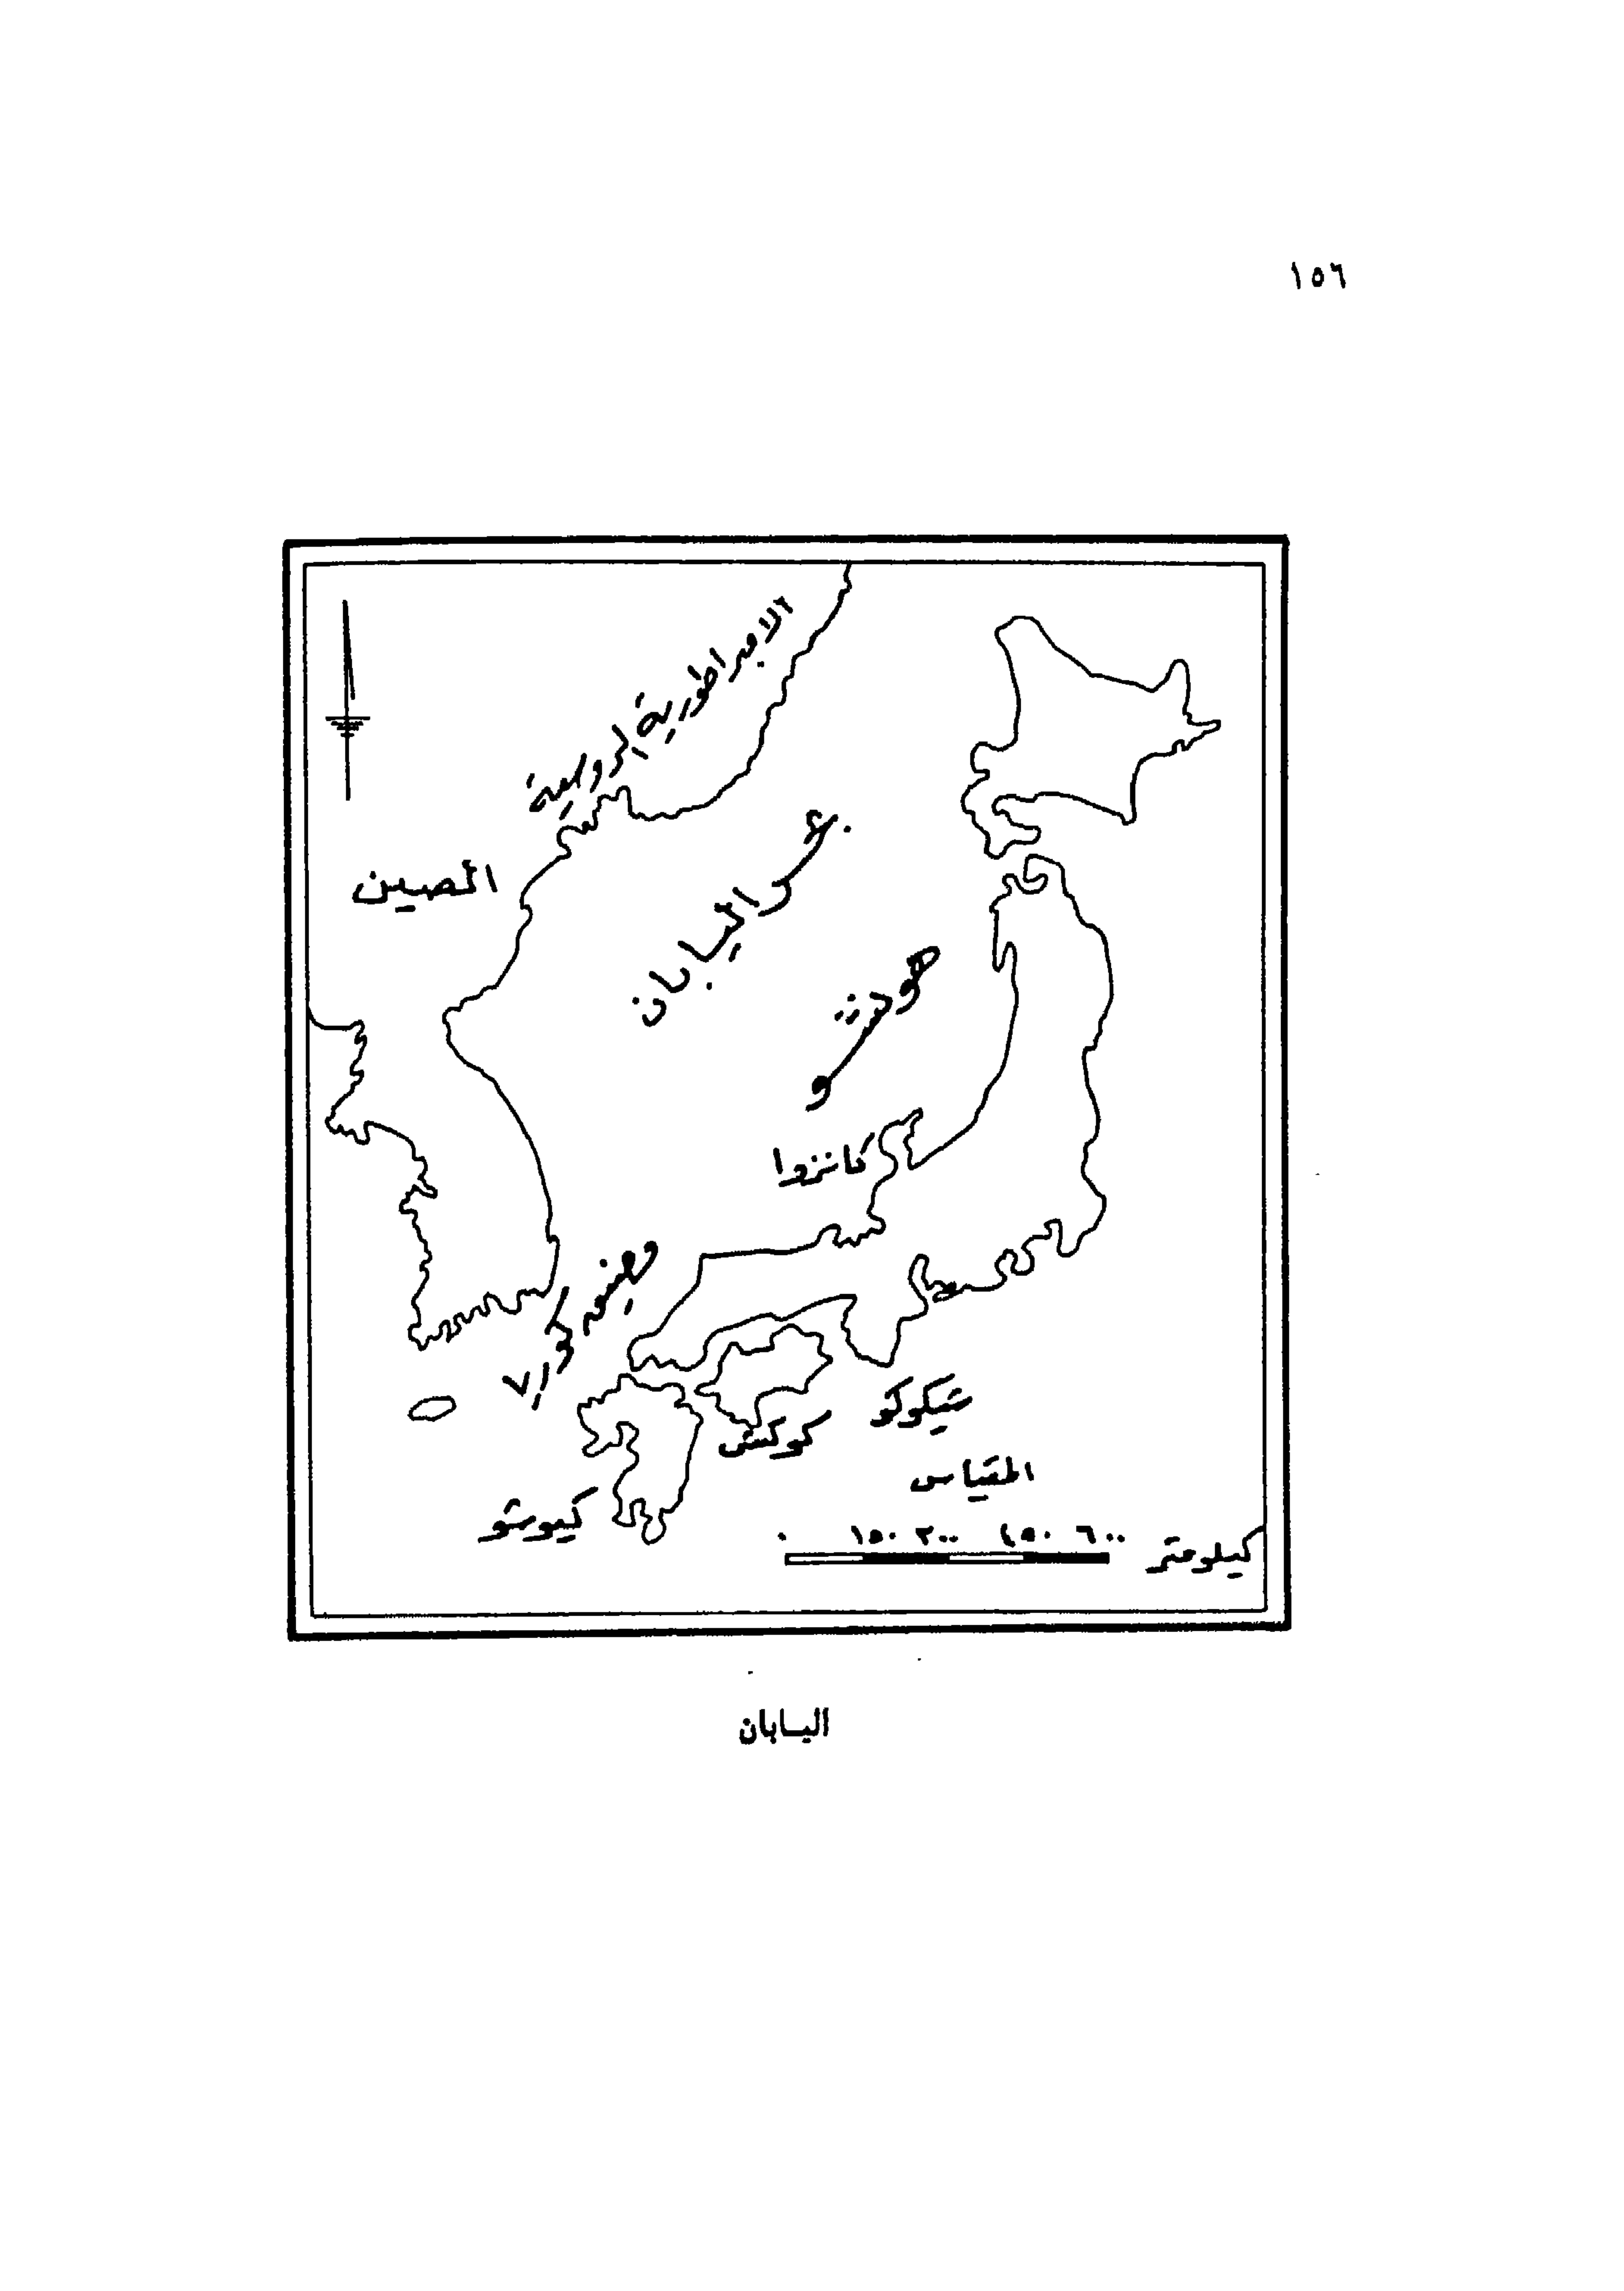 ١٥٦
الامبراطورية الروسية
الصين
بحر اليابان
هونشو
كانزوا
شيكوكو
كوكش
المقياس
كيوشو
٠ ١٥٠ ٣٠٠ ٤٥٠ ٦٠٠
كيلومتر
اليابان